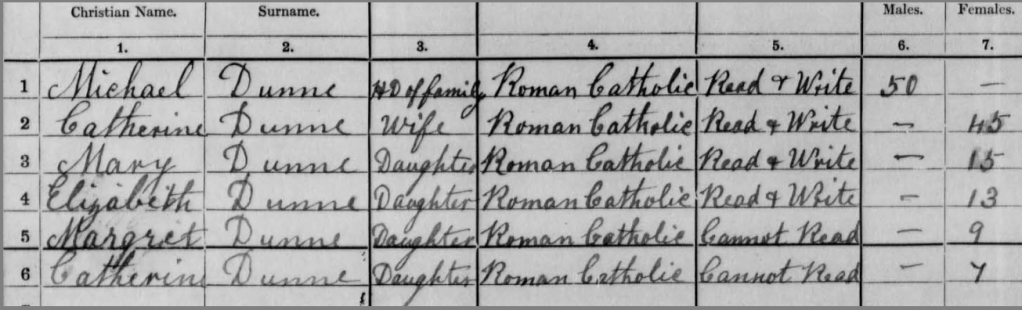 Christian Name. Surname. Males. Females.
1. 2. 3. 4. 5. 6. 7.
1 Michael Dunne HD of family Roman Catholic Read & Write 50 —
2 Catherine Dunne Wife Roman Catholic Read & Write — 45
3 Mary Dunne Daughter Roman Catholic Read & Write — 15
4 Elizabeth Dunne Daughter Roman Catholic Read & Write — 13
5 Margret Dunne Daughter Roman Catholic Cannot Read — 9
6 Catherine Dunne Daughter Roman Catholic Cannot Read — 7